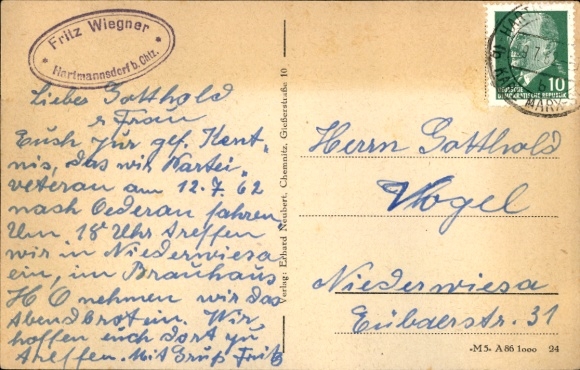 Fritz Wiegner
Hartmannsdorf b. Chtz.
Lieber Gotthold
u Frau
Euch zur gef. Kent-
nis, das wir Partei-
veteran am 12.7.62
nach Oederan fahren
Um 18 Uhr treffen
wir in Niederwiesa
ein, im Brauhaus
H O nehmen wir das
Abendbrot ein. Wir
hoffen euch dort zu
treffen. Mit Gruß Fritz
Verlag: Erhard Neubert, Chemnitz, Gießerstraße 10
10
DEUTSCHE
DEMOKRATISCHE REPUBLIK
Herrn Gotthold
Vogel
Niederwiesa
Eubaerstr. 31
«M5» A 86 1000 24